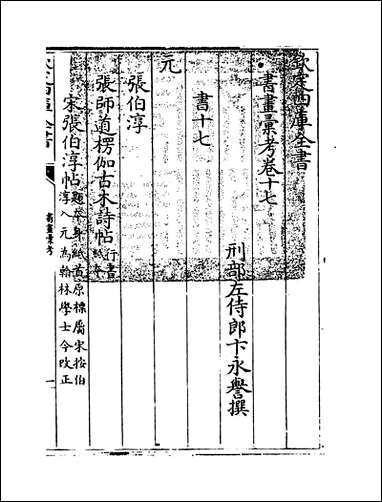 欽定四庫全書
書畫彙考卷十七
刑部左侍郎卞永譽撰
書十七
元
張伯淳
張師道楞伽古木詩帖行書紙本
宋張伯淳帖題於身紙首原標屬宋按伯
淳入元為翰林學士今改正
欽定四庫全書
書畫彙考
一